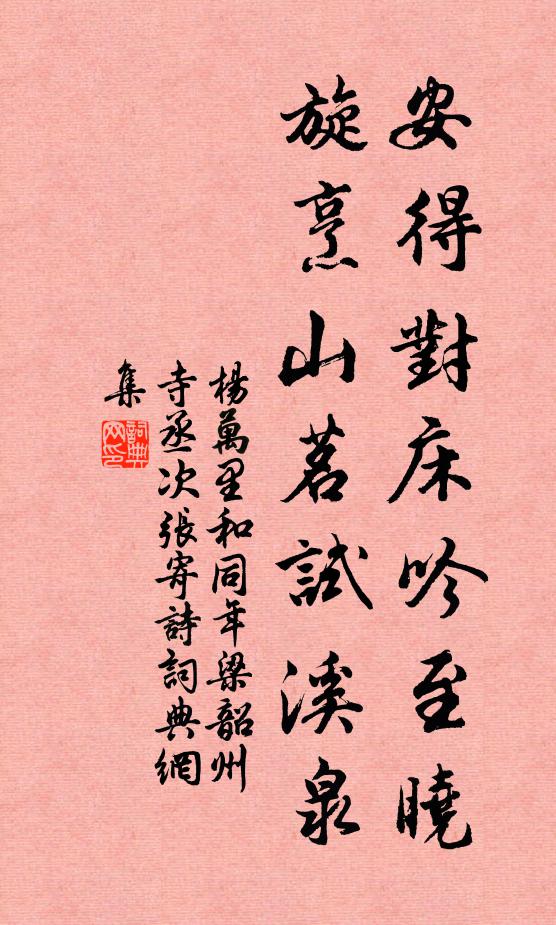 安得對床吟至曉
旋烹山茗試溪泉
楊萬里和同年梁韶州
寺丞次張寄詩詞典網
集
詞典
网印